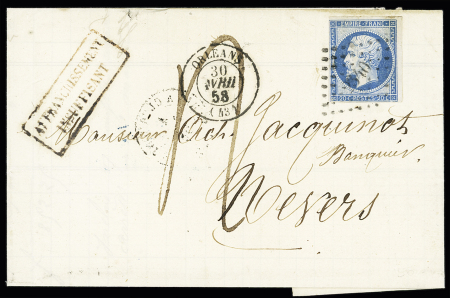 AFFRANCHISSEMENT
INSUFFISANT
ORLEANS
30
AVRIL
58
(43)
EMPIRE FRANC.
Monsieur Ach. Jacquinot
Banquier
Nevers